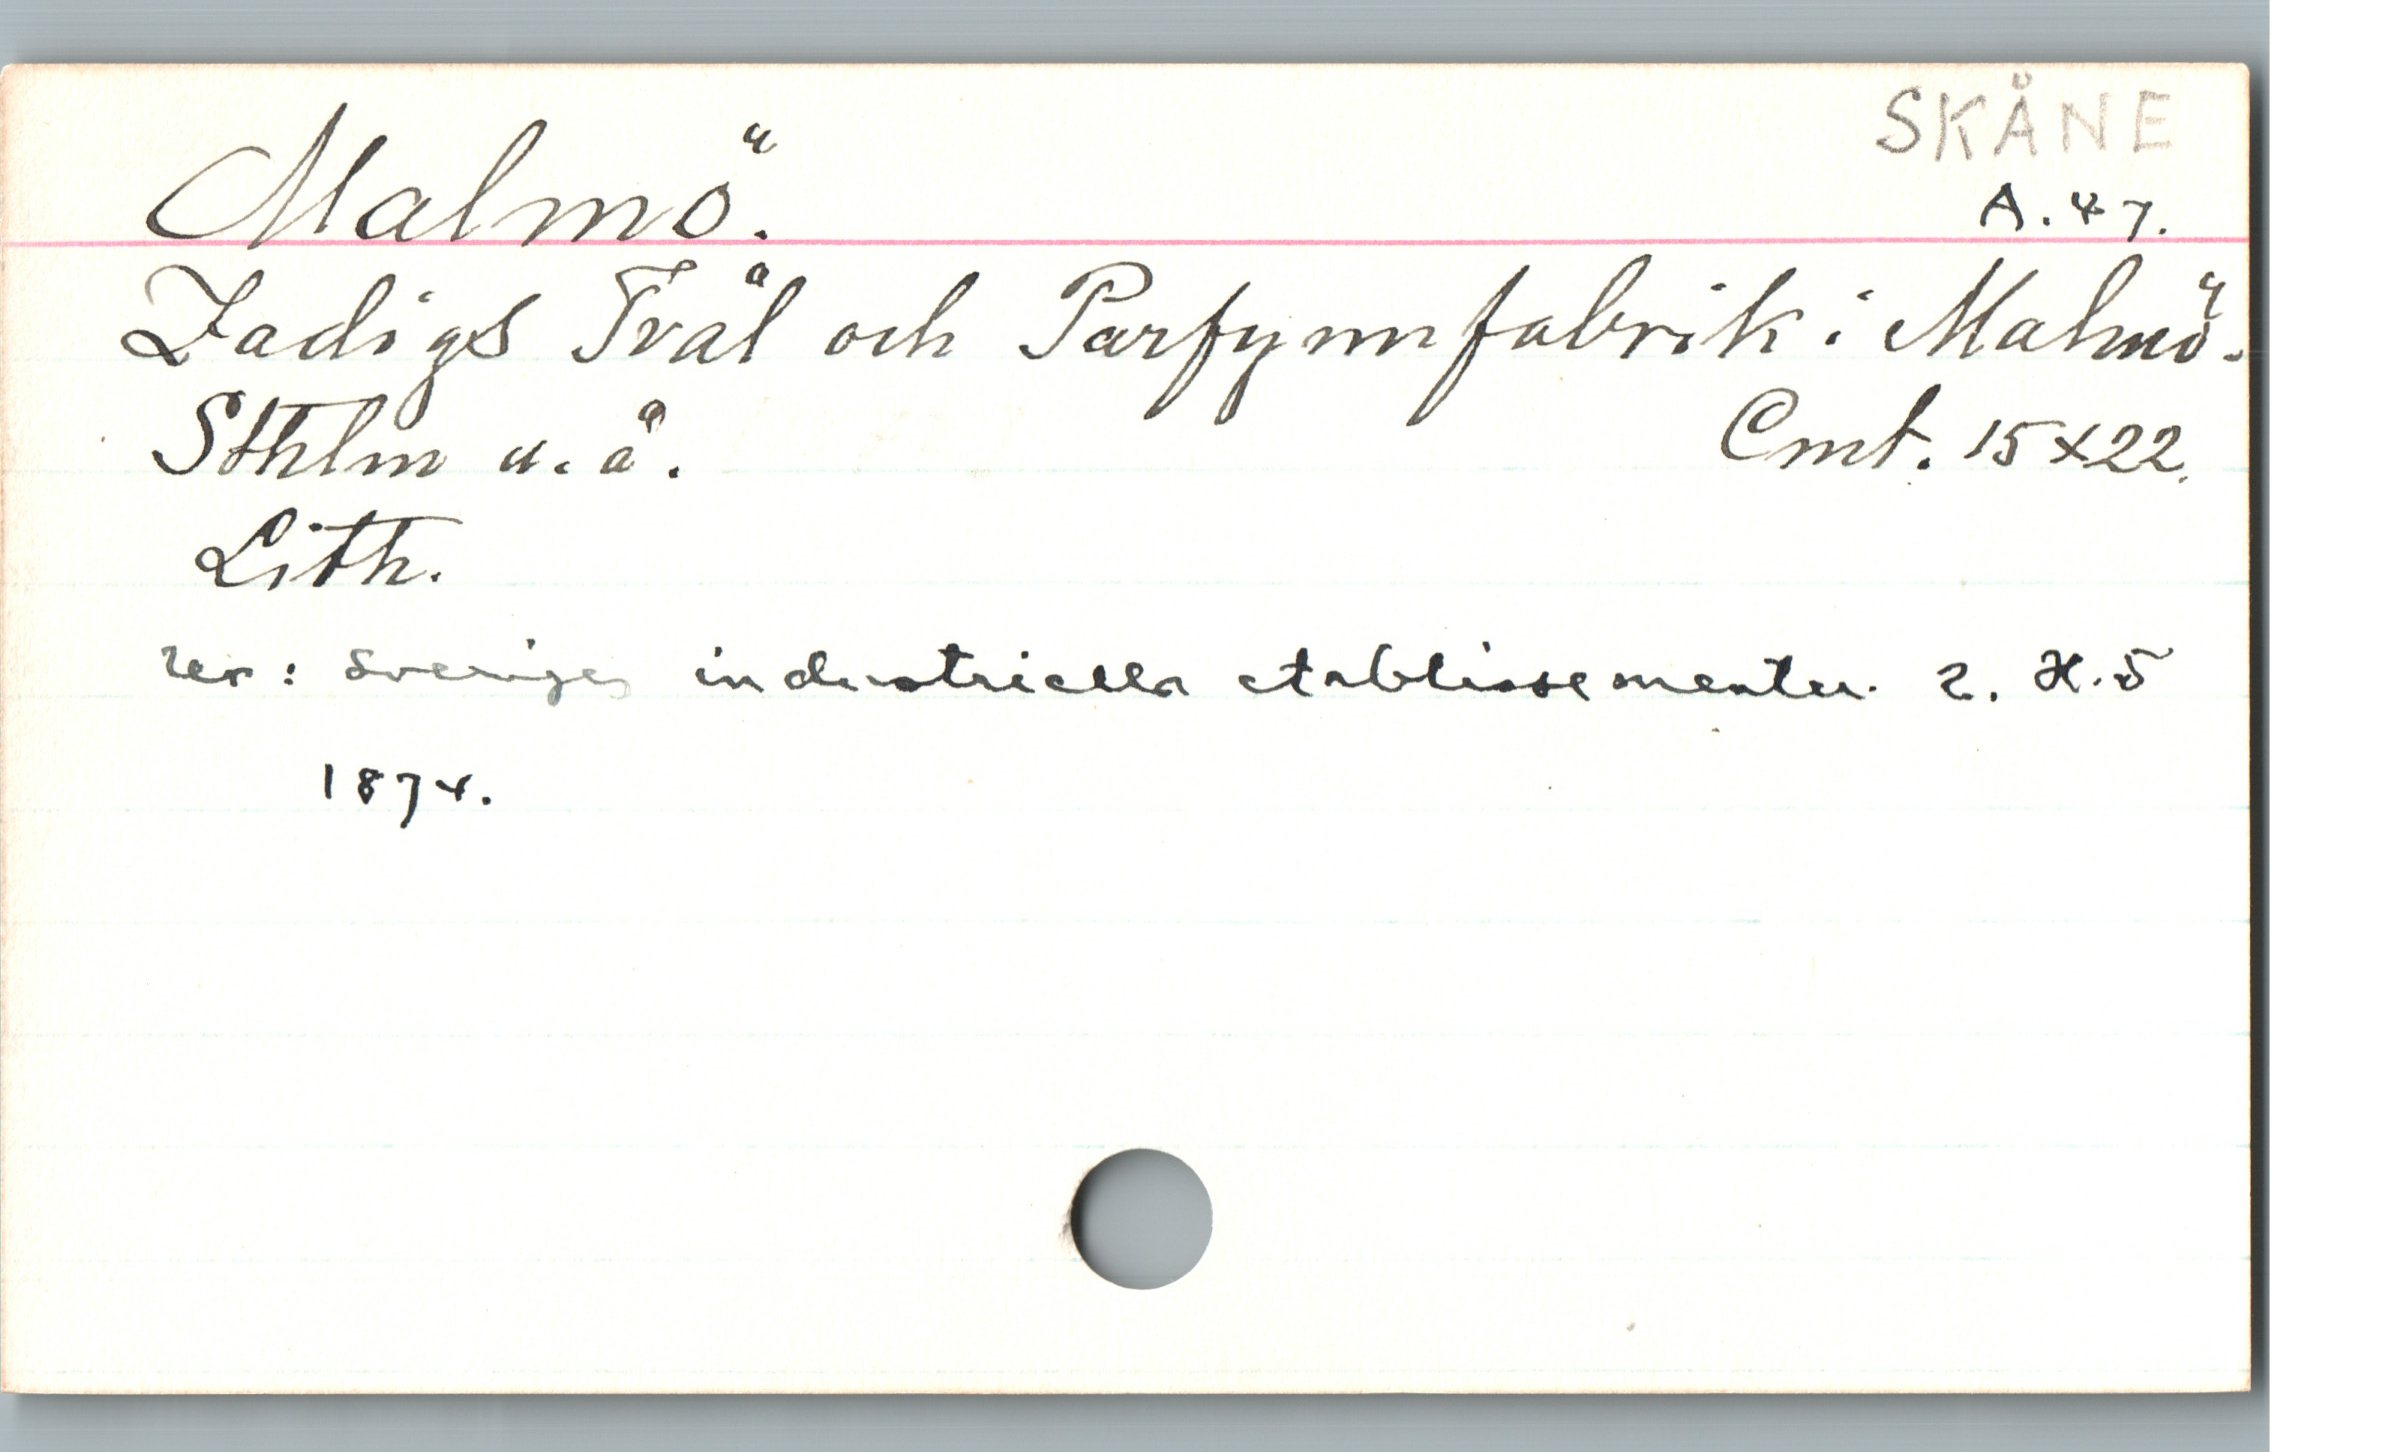 SKÅNE
Malmö.
A.47.
Zadigs Tvål och Parfymfabrik i Malmö.
Sthlm u.å.
Cmt. 15x22.
Lith.
ur: Sveriges industriella etablissementer. 2. H.5
1874.